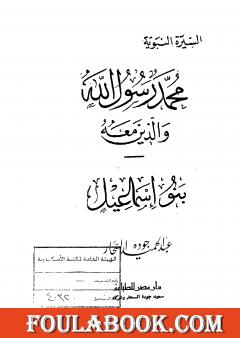 السيرة النبوية
محمد رسول الله
والذين معه
بنو إسماعيل
عبد الحميد جوده السحار
الهيئة العامة لمكتبة الأسكندرية
دار مصر للطباعة
سعيد جودة السحار وشركاه
FOULABOOK.COM